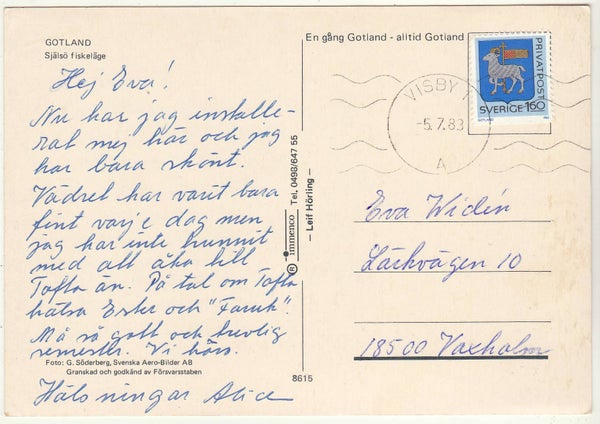 GOTLAND
Själsö fiskeläge
Hej Eva!
Nu har jag installe-
rat mej här och jag
har bara skönt.
Vädret har varit bara
fint varje dag men
jag har inte hunnit
med att åka till
Tofta än. På tal om Tofta
hälsa Ester och "Faruk".
Må så gott och trevlig
semester. Vi hörs.
Foto: G. Söderberg, Svenska Aero-Bilder AB
Granskad och godkänd av Försvarsstaben
Hälsningar Alice
® immenco Tel. 0498/647 55
– Leif Hörling –
8615
En gång Gotland - alltid Gotland
PRIVATPOST
SVERIGE 160
VISBY 1
-5.7.83
A
Eva Widén
Lärkvägen 10
18500 Vaxholm